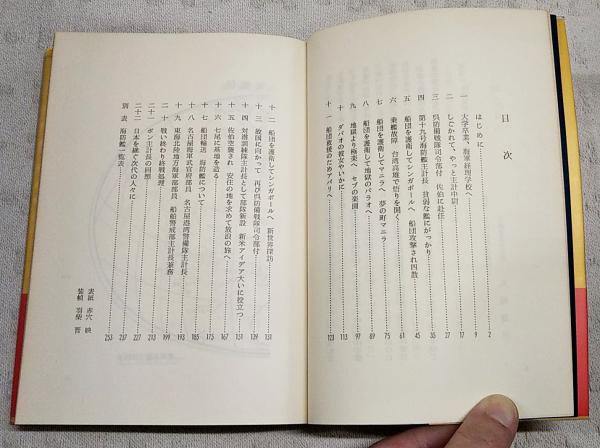 目次
はじめに…………2
一 大学卒業、海軍経理学校へ…………9
二 しごかれて、やっと主計中尉…………17
三 呉防備戦隊司令部付 佐伯に赴任…………27
四 第十九号海防艦主計長 貧弱な艦にがっかり…………35
五 船団を護衛してシンガポールへ 船団攻撃され四散…………45
六 乗艦故障 台湾高雄で悟りを開く…………61
七 船団を護衛してマニラへ 夢の町マニラ…………75
八 船団を護衛して地獄のパラオへ…………89
九 地獄より極楽へ セブの楽園…………97
十 ダバオの彼女やいかに…………113
十一 船団救援のためアパリへ…………123
十二 船団を護衛してシンガポールへ 新世界探訪…………131
十三 故国に向かって 再び呉防備戦隊司令部付…………139
十四 対潜訓練隊主計長として部隊新設 新米アイデア大いに役立つ…………151
十五 佐伯空襲され 安住の地を求めて放浪の旅へ…………167
十六 七尾に基地を造る…………175
十七 船団輸送 海防艦について…………185
十八 名古屋海軍武官府部員 名古屋港湾警備隊主計長…………193
十九 東海北陸地方海軍部部員 船舶警戒部主計長兼務…………199
二十 戦い終わり終戦処理…………213
二十一 ポン主計長の回想…………227
二十二 日本を継ぐ次代の人々に…………237
別表 海防艦一覧表…………253
表紙 赤穴 映
装幀 羽柴 晋